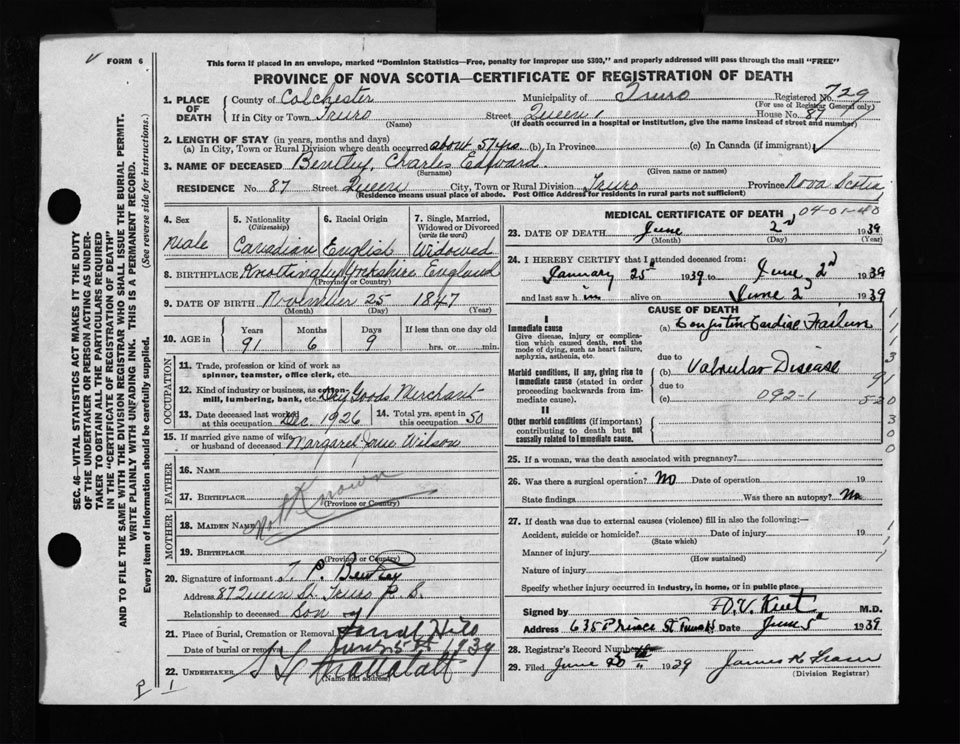 FORM 6
This form if placed in an envelope, marked "Dominion Statistics—Free, penalty for improper use $300," and properly addressed will pass through the mail "FREE"
PROVINCE OF NOVA SCOTIA—CERTIFICATE OF REGISTRATION OF DEATH
SEC. 46—VITAL STATISTICS ACT MAKES IT THE DUTY
OF THE UNDERTAKER OR PERSON ACTING AS UNDER-
TAKER TO OBTAIN ALL THE PARTICULARS REQUIRED
IN THE "CERTIFICATE OF REGISTRATION OF DEATH"
AND TO FILE THE SAME WITH THE DIVISION REGISTRAR WHO SHALL ISSUE THE BURIAL PERMIT.
WRITE PLAINLY WITH UNFADING INK. THIS IS A PERMANENT RECORD.
Every item of Information should be carefully supplied. (See reverse side for instructions.)
1. PLACE OF DEATH County of Colchester Municipality of Truro Registered No. 729
(For use of Registrar General only)
If in City or Town Truro Street Queen House No. 87
(Name) (If death occurred in a hospital or Institution, give the name instead of street and number)
2. LENGTH OF STAY (in years, months and days)
(a) In City, Town or Rural Division where death occurred about 57 yrs. (b) In Province (c) In Canada (if immigrant)
3. NAME OF DECEASED Bentley, Charles Edward
(Surname) (Given name or names)
RESIDENCE No. 87 Street Queen City, Town or Rural Division Truro Province Nova Scotia
(Residence means usual place of abode. Post Office Address for residents in rural parts not sufficient)
4. Sex Male
5. Nationality (Citizenship) Canadian
6. Racial Origin English
7. Single, Married, Widowed or Divorced (write the word) Widowed
8. BIRTHPLACE Knottingly Yorkshire England
(Province or Country)
9. DATE OF BIRTH November 25 1847
(Month) (Day) (Year)
10. AGE in Years Months Days If less than one day old
91 6 9 hrs. or min.
OCCUPATION
11. Trade, profession or kind of work as
spinner, teamster, office clerk, etc.
12. Kind of industry or business, as cotton-
mill, lumbering, bank, etc. Dry Goods Merchant
13. Date deceased last worked at this occupation Dec. 1926
14. Total yrs. spent in this occupation 50
15. If married give name of wife or husband of deceased Margaret Jane Wilson
FATHER
16. Name
17. Birthplace
(Province or Country)
Not Known
MOTHER
18. Maiden Name
19. Birthplace
(Province or Country)
20. Signature of informant Bentley
Address 87 Queen St. Truro
Relationship to deceased Son
21. Place of Burial, Cremation or Removal
Date of burial or removal June 5th 1939
22. Undertaker
(Name and address)
MEDICAL CERTIFICATE OF DEATH
04-01-40
23. DATE OF DEATH June 2nd 1939
(Month) (Day) (Year)
24. I HEREBY CERTIFY that I attended deceased from:
January 25 1939 to June 2nd 1939
and last saw him alive on June 2 1939
CAUSE OF DEATH
I
Immediate cause
Give disease, injury or complica-
tion which caused death, not the
mode of dying, such as heart failure,
asphyxia, asthenia, etc.
(a) Congestive Cardiac Failure
due to
Morbid conditions, if any, giving rise to
immediate cause (stated in order
proceeding backwards from im-
mediate cause).
(b) Valvular Disease
due to
(c) 092-1
II
Other morbid conditions (if important)
contributing to death but not
causally related to immediate cause.
25. If a woman, was the death associated with pregnancy?
26. Was there a surgical operation? No Date of operation 19
State findings Was there an autopsy? No
27. If death was due to external causes (violence) fill in also the following:—
Accident, suicide or homicide? Date of injury 19
(State which)
Manner of injury
(How sustained)
Nature of injury
Specify whether injury occurred in industry, in home, or in public place
Signed by M.D.
Address 635 Prince St Truro Date June 5 1939
28. Registrar's Record Number
29. Filed June 1939 James K Fraser
(Division Registrar)